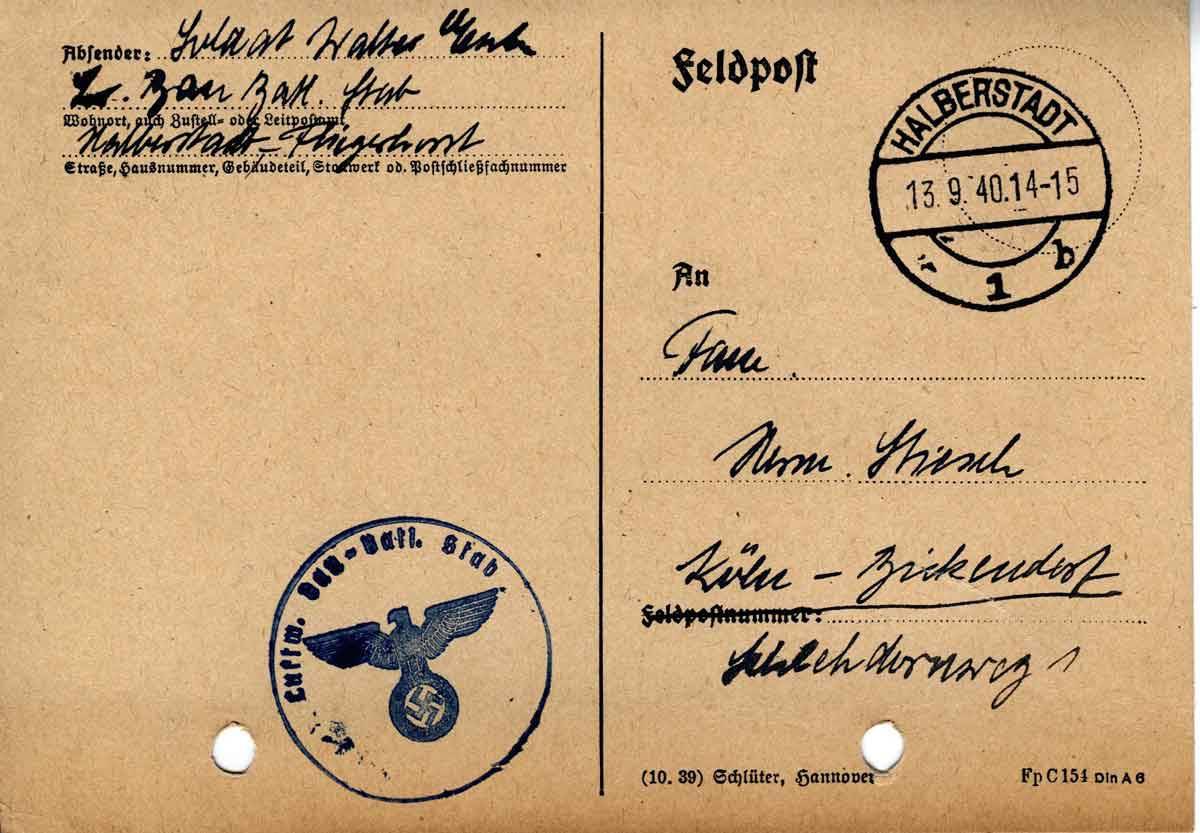 Absender: Soldat Walter
Bau Batl. Stab
Wohnort, auch Zustell- oder Leitpostamt
Halberstadt-Fliegerhorst
Straße, Hausnummer, Gebäudeteil, Stockwerk od. Postschließfachnummer
Luftw. Bau-Batl. Stab
Feldpost
HALBERSTADT
13.9.40.14-15
1 b
An
Fam.
Herm. Stiesch
Köln - Bickendorf
Feldpostnummer:
Schlehdornweg 1
(10. 39) Schlüter, Hannover
Fp C 154 Din A 6